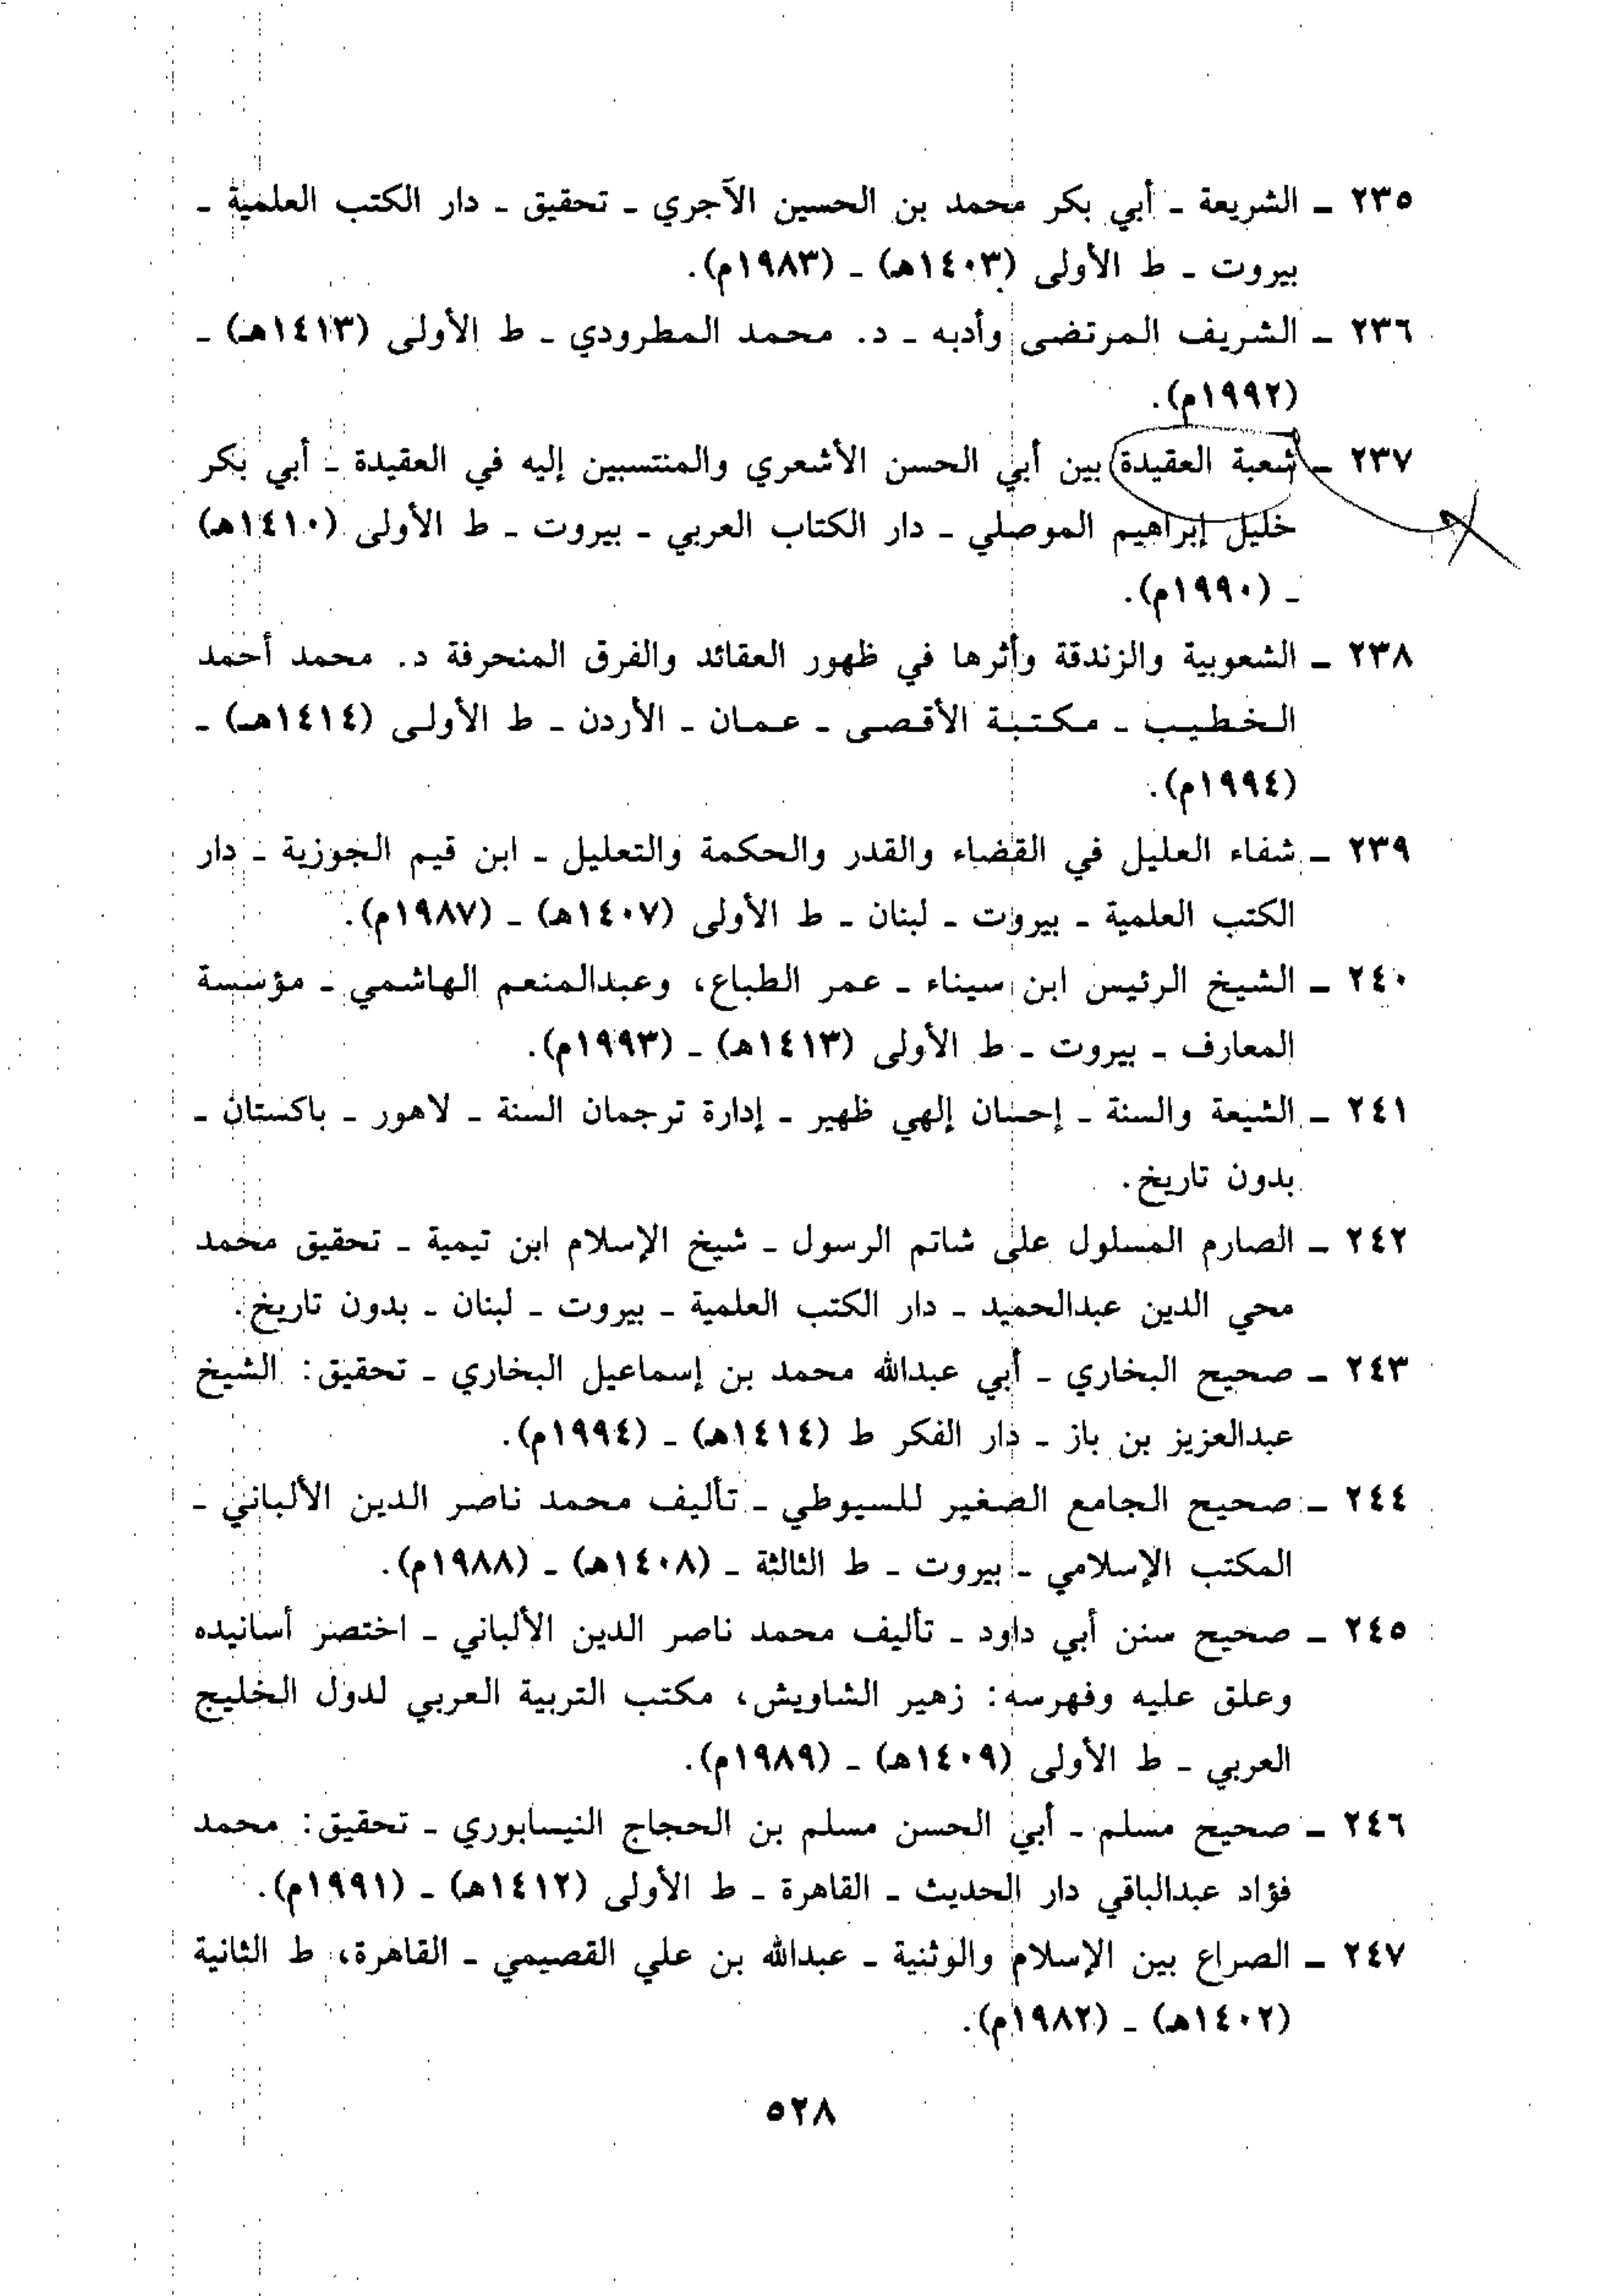 ٢٣٥ ـ الشريعة ـ أبي بكر محمد بن الحسين الآجري ـ تحقيق ـ دار الكتب العلمية ـ
بيروت ـ ط الأولى (١٤٠٣هـ) ـ (١٩٨٣م).
٢٣٦ ـ الشريف المرتضى وأدبه ـ د. محمد المطرودي ـ ط الأولى (١٤١٣هـ) ـ
(١٩٩٢م).
٢٣٧ ـ شعبة العقيدة بين أبي الحسن الأشعري والمنتسبين إليه في العقيدة ـ أبي بكر
خليل إبراهيم الموصلي ـ دار الكتاب العربي ـ بيروت ـ ط الأولى (١٤١٠هـ)
ـ (١٩٩٠م).
٢٣٨ ـ الشعوبية والزندقة وأثرها في ظهور العقائد والفرق المنحرفة د. محمد أحمد
الخطيب ـ مكتبة الأقصى ـ عمان ـ الأردن ـ ط الأولى (١٤١٤هـ) ـ
(١٩٩٤م).
٢٣٩ ـ شفاء العليل في القضاء والقدر والحكمة والتعليل ـ ابن قيم الجوزية ـ دار
الكتب العلمية ـ بيروت ـ لبنان ـ ط الأولى (١٤٠٧هـ) ـ (١٩٨٧م).
٢٤٠ ـ الشيخ الرئيس ابن سيناء ـ عمر الطباع، وعبدالمنعم الهاشمي ـ مؤسسة
المعارف ـ بيروت ـ ط الأولى (١٤١٣هـ) ـ (١٩٩٣م).
٢٤١ ـ الشيعة والسنة ـ إحسان إلهي ظهير ـ إدارة ترجمان السنة ـ لاهور ـ باكستان ـ
بدون تاريخ.
٢٤٢ ـ الصارم المسلول على شاتم الرسول ـ شيخ الإسلام ابن تيمية ـ تحقيق محمد
محي الدين عبدالحميد ـ دار الكتب العلمية ـ بيروت ـ لبنان ـ بدون تاريخ.
٢٤٣ ـ صحيح البخاري ـ أبي عبدالله محمد بن إسماعيل البخاري ـ تحقيق: الشيخ
عبدالعزيز بن باز ـ دار الفكر ط (١٤١٤هـ) ـ (١٩٩٤م).
٢٤٤ ـ صحيح الجامع الصغير للسيوطي ـ تأليف محمد ناصر الدين الألباني ـ
المكتب الإسلامي ـ بيروت ـ ط الثالثة ـ (١٤٠٨هـ) ـ (١٩٨٨م).
٢٤٥ ـ صحيح سنن أبي داود ـ تأليف محمد ناصر الدين الألباني ـ اختصر أسانيده
وعلق عليه وفهرسه: زهير الشاويش، مكتب التربية العربي لدول الخليج
العربي ـ ط الأولى (١٤٠٩هـ) ـ (١٩٨٩م).
٢٤٦ ـ صحيح مسلم ـ أبي الحسن مسلم بن الحجاج النيسابوري ـ تحقيق: محمد
فؤاد عبدالباقي دار الحديث ـ القاهرة ـ ط الأولى (١٤١٢هـ) ـ (١٩٩١م).
٢٤٧ ـ الصراع بين الإسلام والوثنية ـ عبدالله بن علي القصيمي ـ القاهرة، ط الثانية
(١٤٠٢هـ) ـ (١٩٨٢م).
٥٢٨